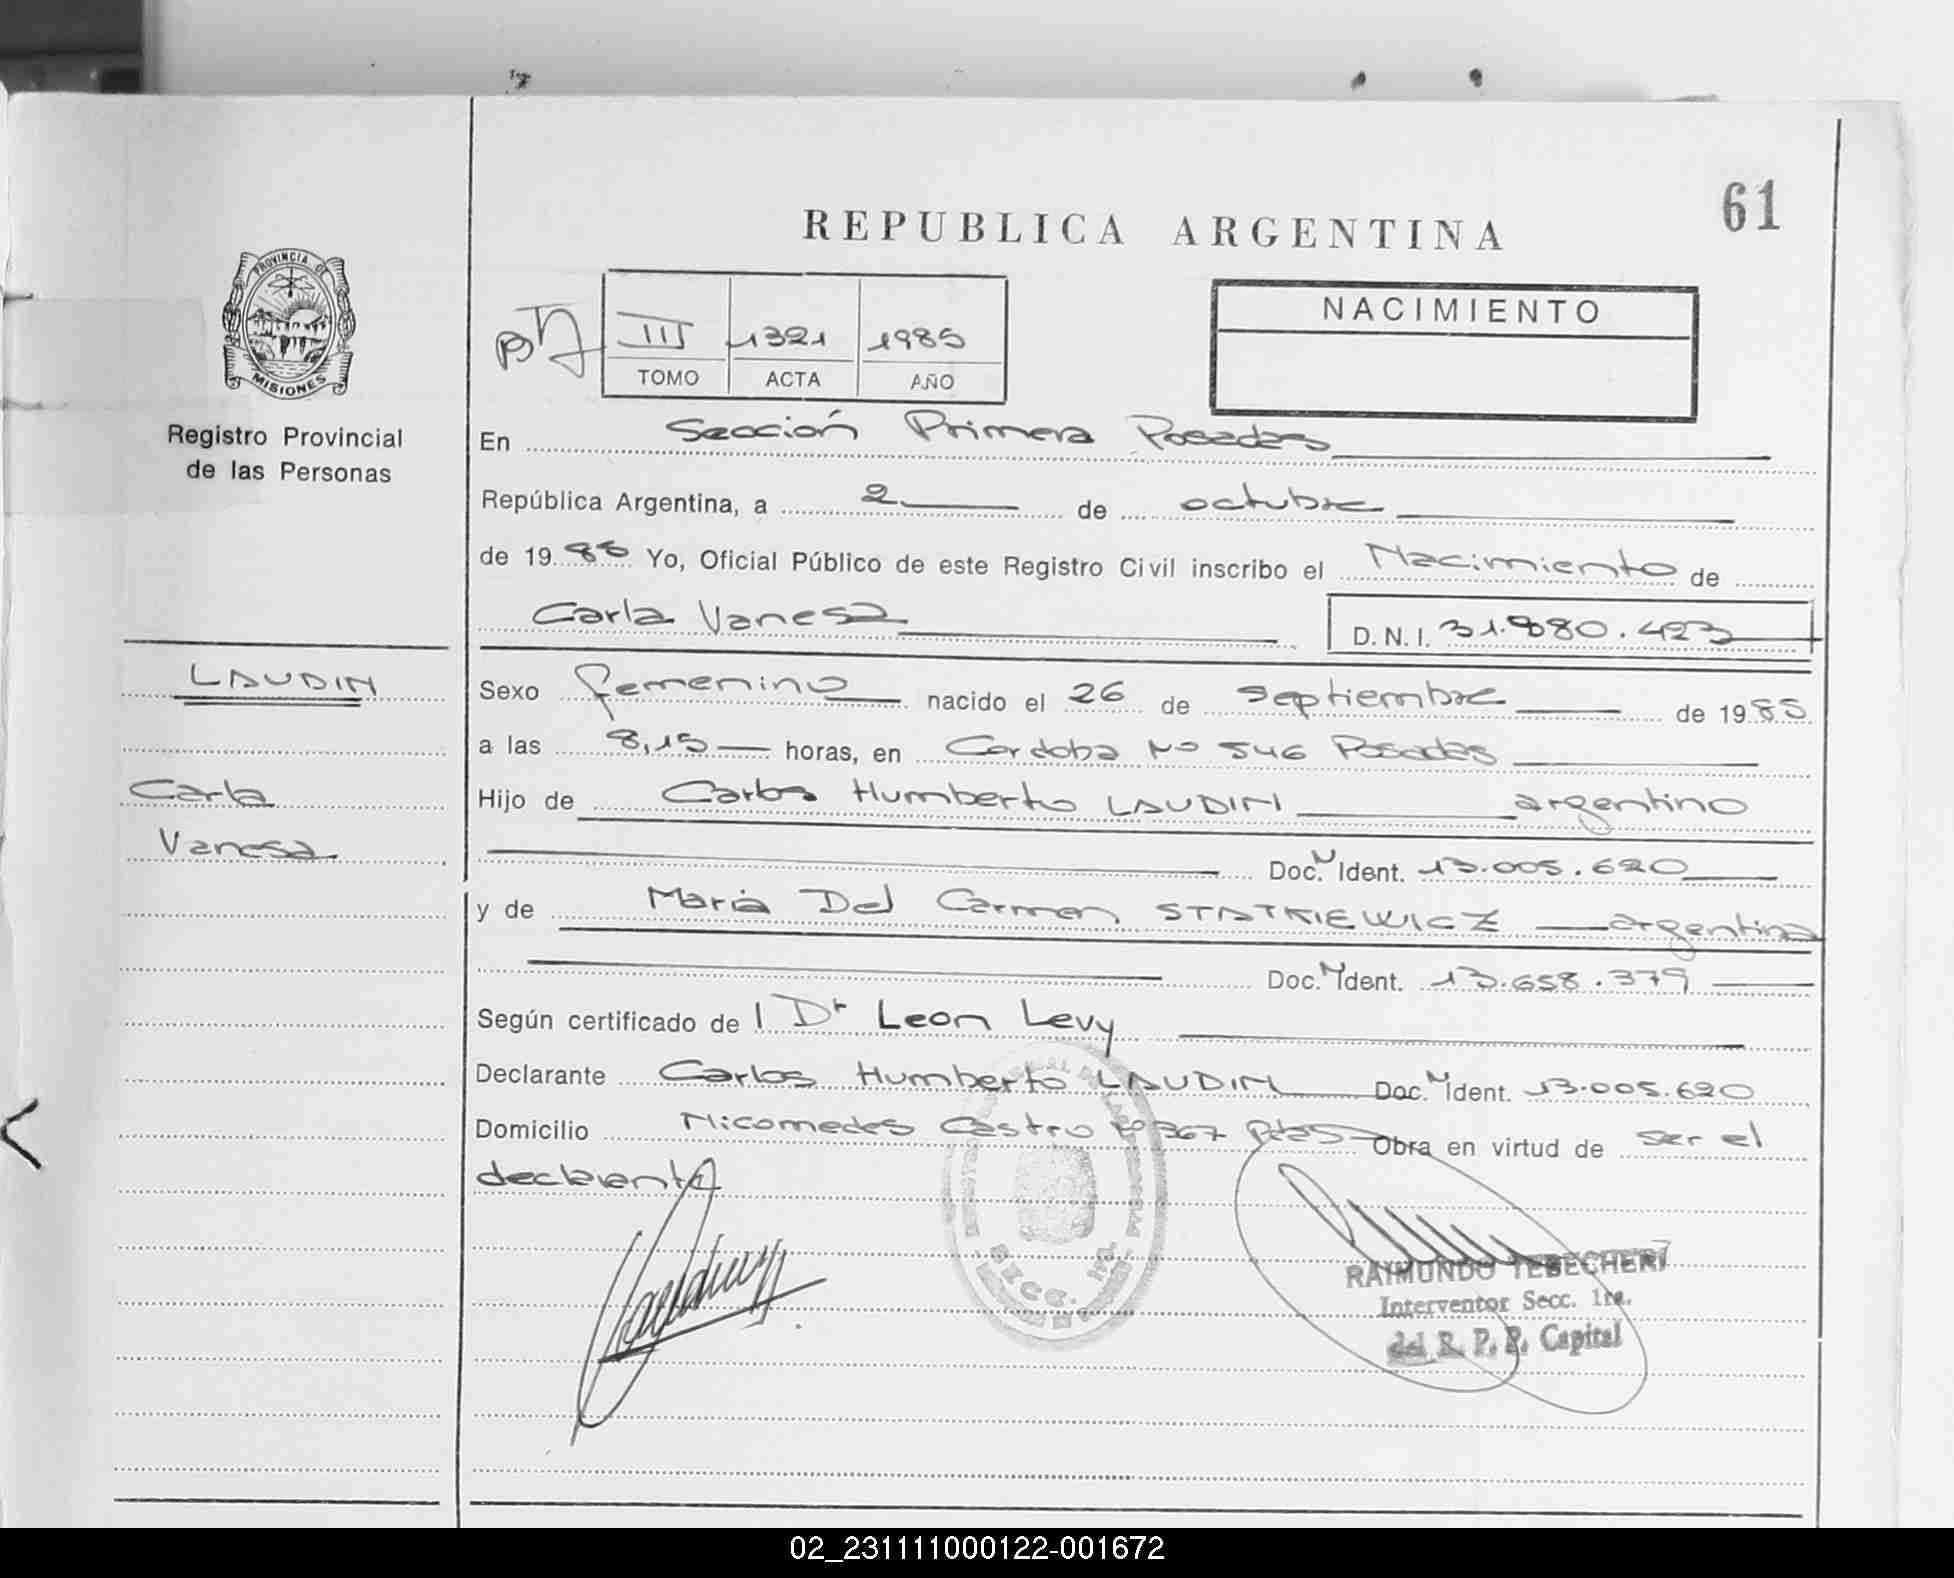 61
REPUBLICA ARGENTINA
PROVINCIA DE
MISIONES
III 1321 1985
TOMO ACTA AÑO
NACIMIENTO
Registro Provincial
de las Personas
En Sección Primera Posadas
República Argentina, a 2 de octubre
de 1985 Yo, Oficial Público de este Registro Civil inscribo el Nacimiento de
Carla Vanesa D.N.I. 31.880.423
LAUDIN
Sexo femenino nacido el 26 de septiembre de 1985
a las 8,15 horas, en Cordoba Nº 546 Posadas
Carla
Hijo de Carlos Humberto LAUDIN argentino
Vanesa
Doc. N Ident. 13.005.620
y de Maria Del Carmen STATKIEWICZ argentina
Doc. N Ident. 13.658.379
Según certificado de l Dr Leon Levy
Declarante Carlos Humberto LAUDIN Doc. N Ident. 13.005.620
Domicilio Nicomedes Castro Nº 367 Pdas Obra en virtud de ser el
declarante
SECC. 1ra.
RAIMUNDO TEBECHERI
Interventor Secc. 1ra.
del R. P. P. Capital
02_231111000122-001672